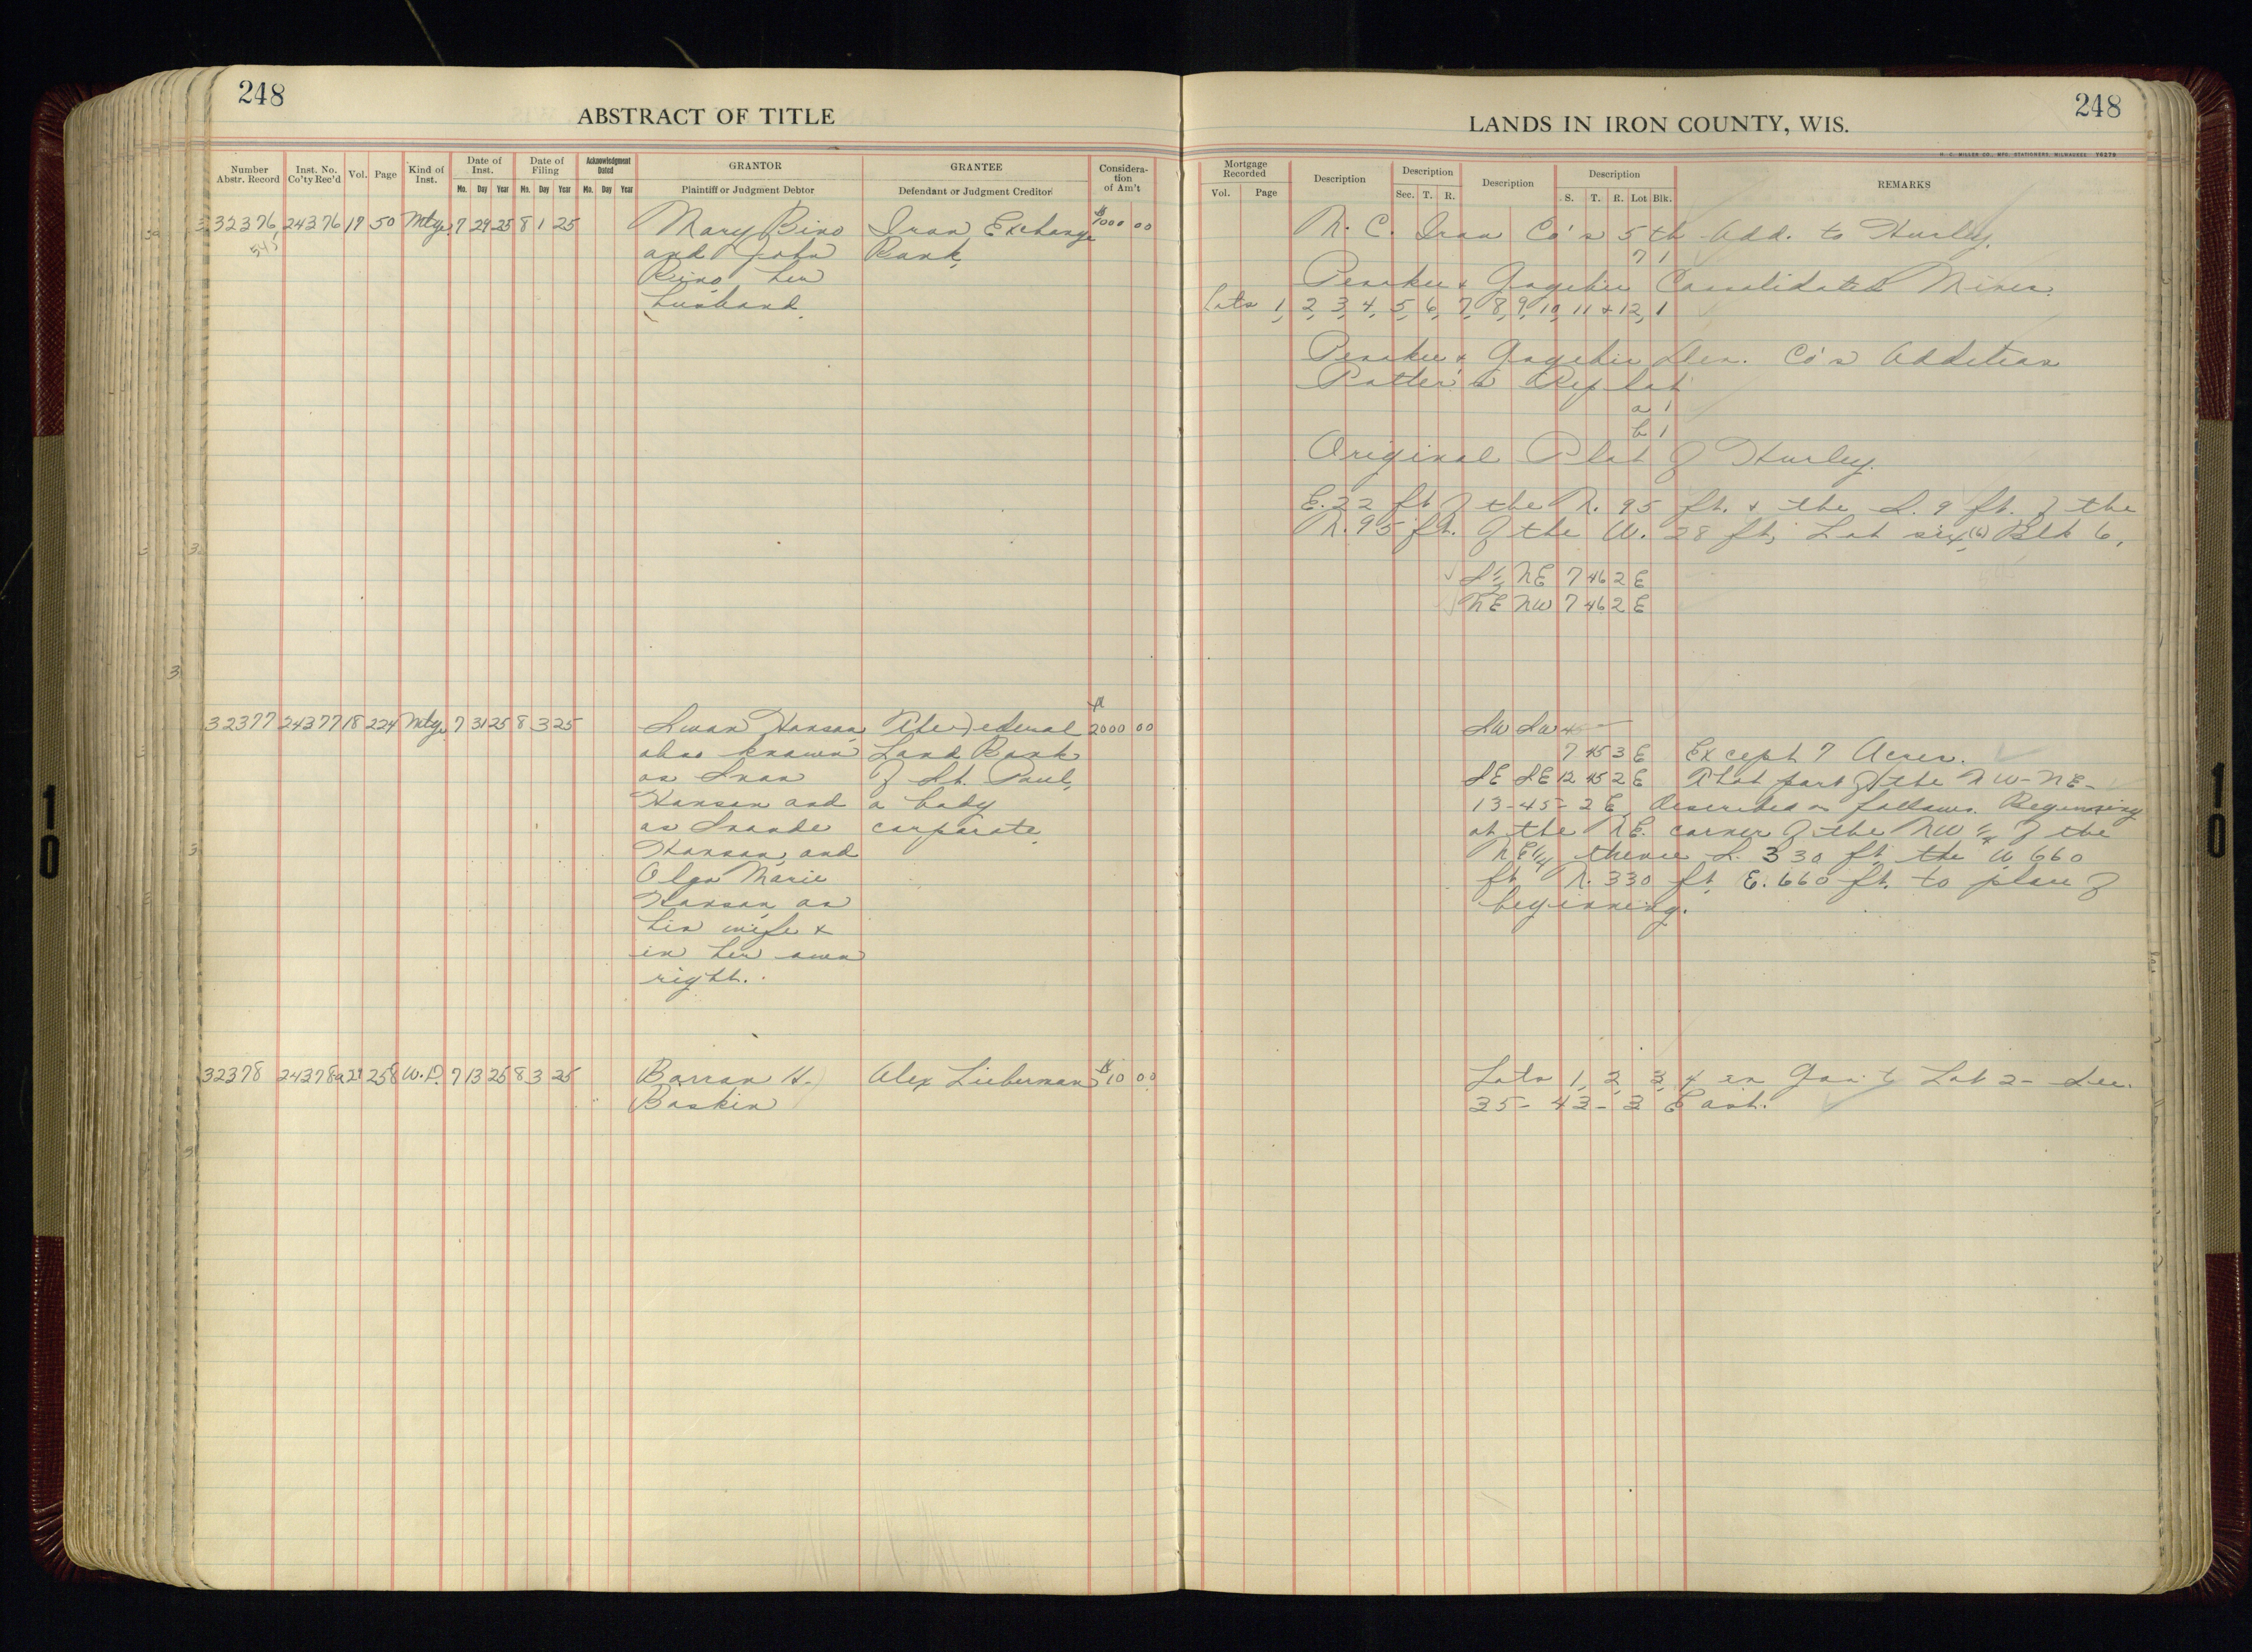 248
ABSTRACT OF TITLE
Number Abstr. Record
Inst. No. Co'ty Rec'd
Vol.
Page
Kind of Inst.
Date of Inst.
Mo. Day Year
Date of Filing
Mo. Day Year
Acknowledgment Dated
Mo. Day Year
GRANTOR
Plaintiff or Judgment Debtor
GRANTEE
Defendant or Judgment Creditor
Considera-
tion
of Am't
32376 24376 17 50 Mtge 7 29 25 8 1 25 Mary Bino Iron Exchange $1000 00
545 and John Bank
Bino her
husband.
32377 24377 18 224 Mtge 7 31 25 8 3 25 Swan Hanson The Federal $2000 00
also known Land Bank
as Svan of St. Paul,
Hansen and a body
as Svande corporate
Hanson, and
Olga Marie
Hanson, as
his wife &
in her own
right.
32378 24378 a21 258 W.D. 7 13 25 8 3 25 Barran H. Alex Lieberman $10 00
Baskin
248
LANDS IN IRON COUNTY, WIS.
H. C. MILLER CO., MFG. STATIONERS, MILWAUKEE Y6279
Mortgage Recorded
Vol. Page
Description
Description
Sec. T. R.
Description
Description
S. T. R. Lot Blk.
REMARKS
N. C. Iron Co's 5th Add. to Hurley.
7 1
Penokee & Gogebic Consolidated Mines.
Lots 1, 2, 3, 4, 5, 6, 7, 8, 9, 10, 11 & 12, 1
Penokee & Gogebic Dev. Co's Addition
Potter's Replat
a 1
b 1
Original Plat of Hurley.
E. 22 ft of the N. 95 ft. & the S. 9 ft. of the
N. 95 ft. of the W. 28 ft, Lot six (6) Blk 6,
S½ NE 7 46 2 E
NE NW 7 46 2 E
SW SW
7 45 3 E Except 7 Acres.
SE SE 12 45 2 E That part of the NW-NE-
13-45-2E, described as follows. Beginning
at the NE. corner of the NW ¼ of the
NE¼ thence S. 330 ft, the W 660
ft N. 330 ft, E. 660 ft. to place of
beginning.
Lots 1, 2, 3, 4 in Gov't Lot 2- Sec.
35- 43- 3 East.
10
10